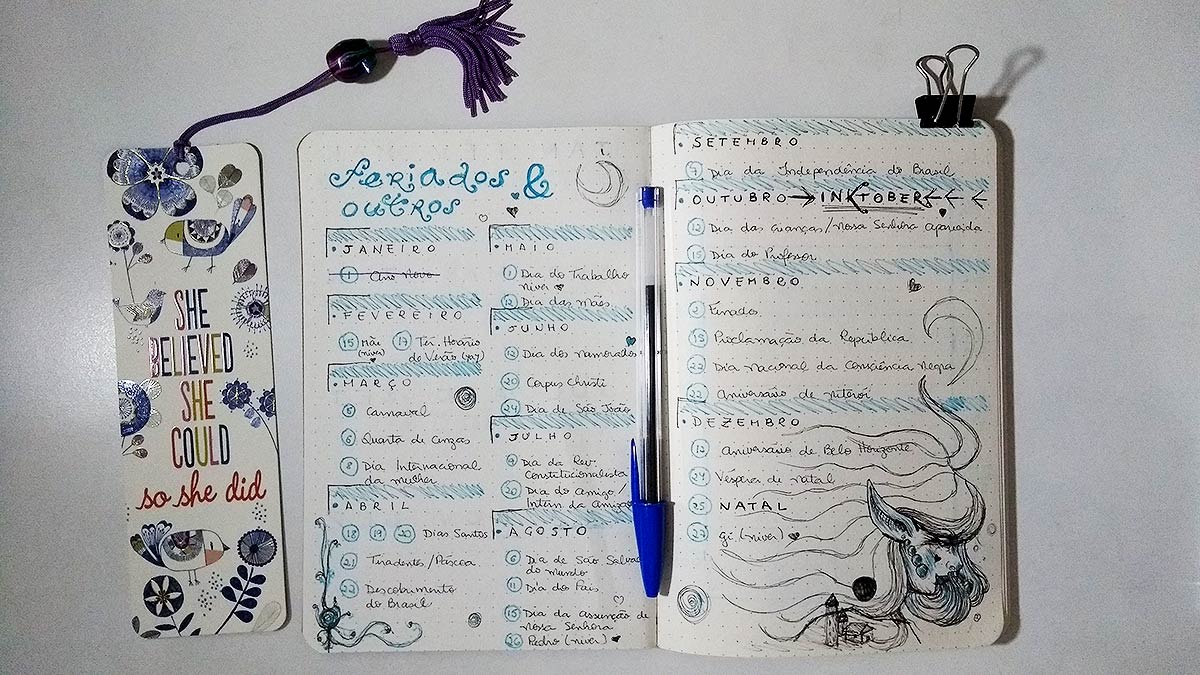 SHE
BELIEVED
SHE
COULD
so she did
Feriados &
outros
JANEIRO
1 Ano Novo
FEVEREIRO
15 Mãe
(niver)
17 Tér. Horário
de Verão (yay)
MARÇO
5 Carnaval
6 Quarta de Cinzas
8 Dia Internacional
da mulher
ABRIL
18 19 20 Dias Santos
21 Tiradentes/Páscoa
22 Descobrimento
do Brasil
MAIO
1 Dia do Trabalho
niver
12 Dia das mães
JUNHO
12 Dia dos namorados
20 Corpus Christi
24 Dia de São João
JULHO
9 Dia da Rev.
Constitucionalista
20 Dia do amigo/
Intern da amizade
AGOSTO
6 Dia de São Salva
do mundo
11 Dia do Pais
15 Dia da assunção de
Nossa Senhora
26 Pedro (niver)
SETEMBRO
7 Dia da Independência do Brasil
OUTUBRO INKTOBER
12 Dia das crianças/Nossa Senhora aparecida
15 Dia do Professor
NOVEMBRO
2 Finados
15 Proclamação da República
22 Dia nacional da consciência negra
22 Aniversário de niterói
DEZEMBRO
12 Aniversário de Belo Horizonte
24 Véspera de natal
25 NATAL
27 gi (niver)